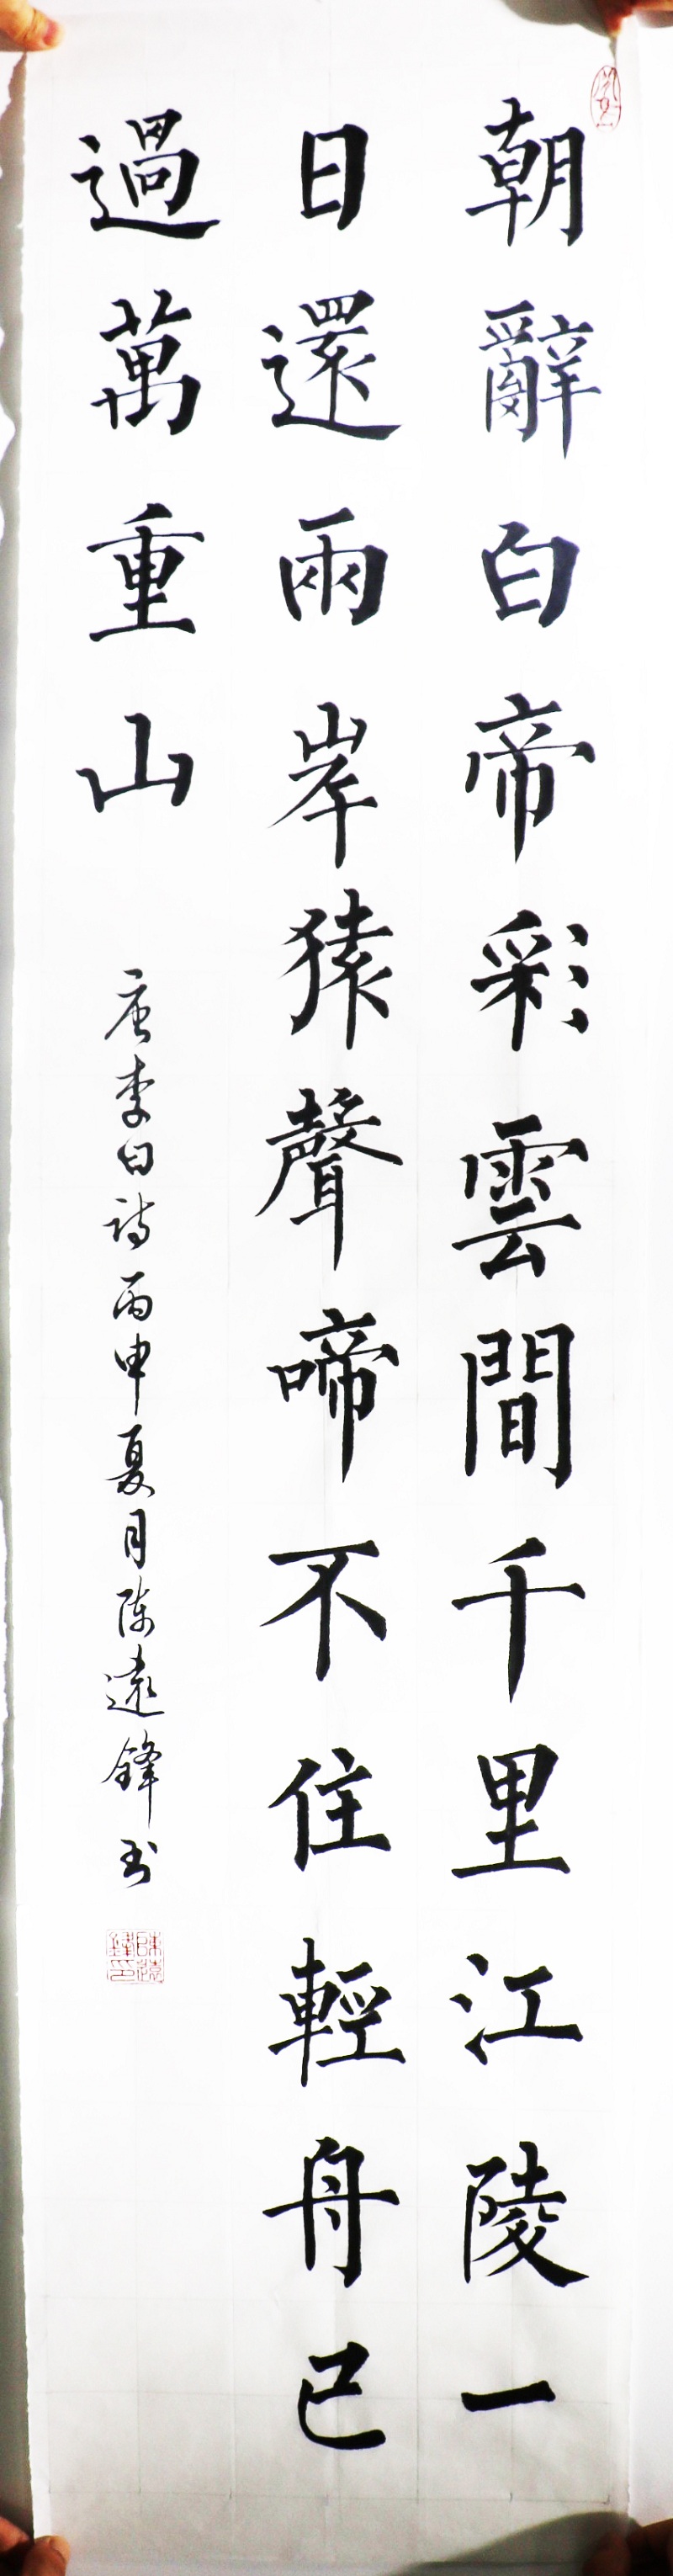 朝辭白帝彩雲間千里江陵一
日還兩岸猿聲啼不住輕舟已
過萬重山
唐李白詩丙申夏月陳遠鋒书
陳遠鋒印